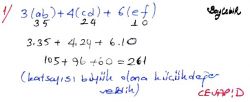 1/ 3(ab)+4(cd)+6(ef)
35 24 10
3.35 + 4.24 + 6.10
105 + 96 + 60 = 261
(katsayısı büyük olana küçük değer
verdik)
CEVAP:D